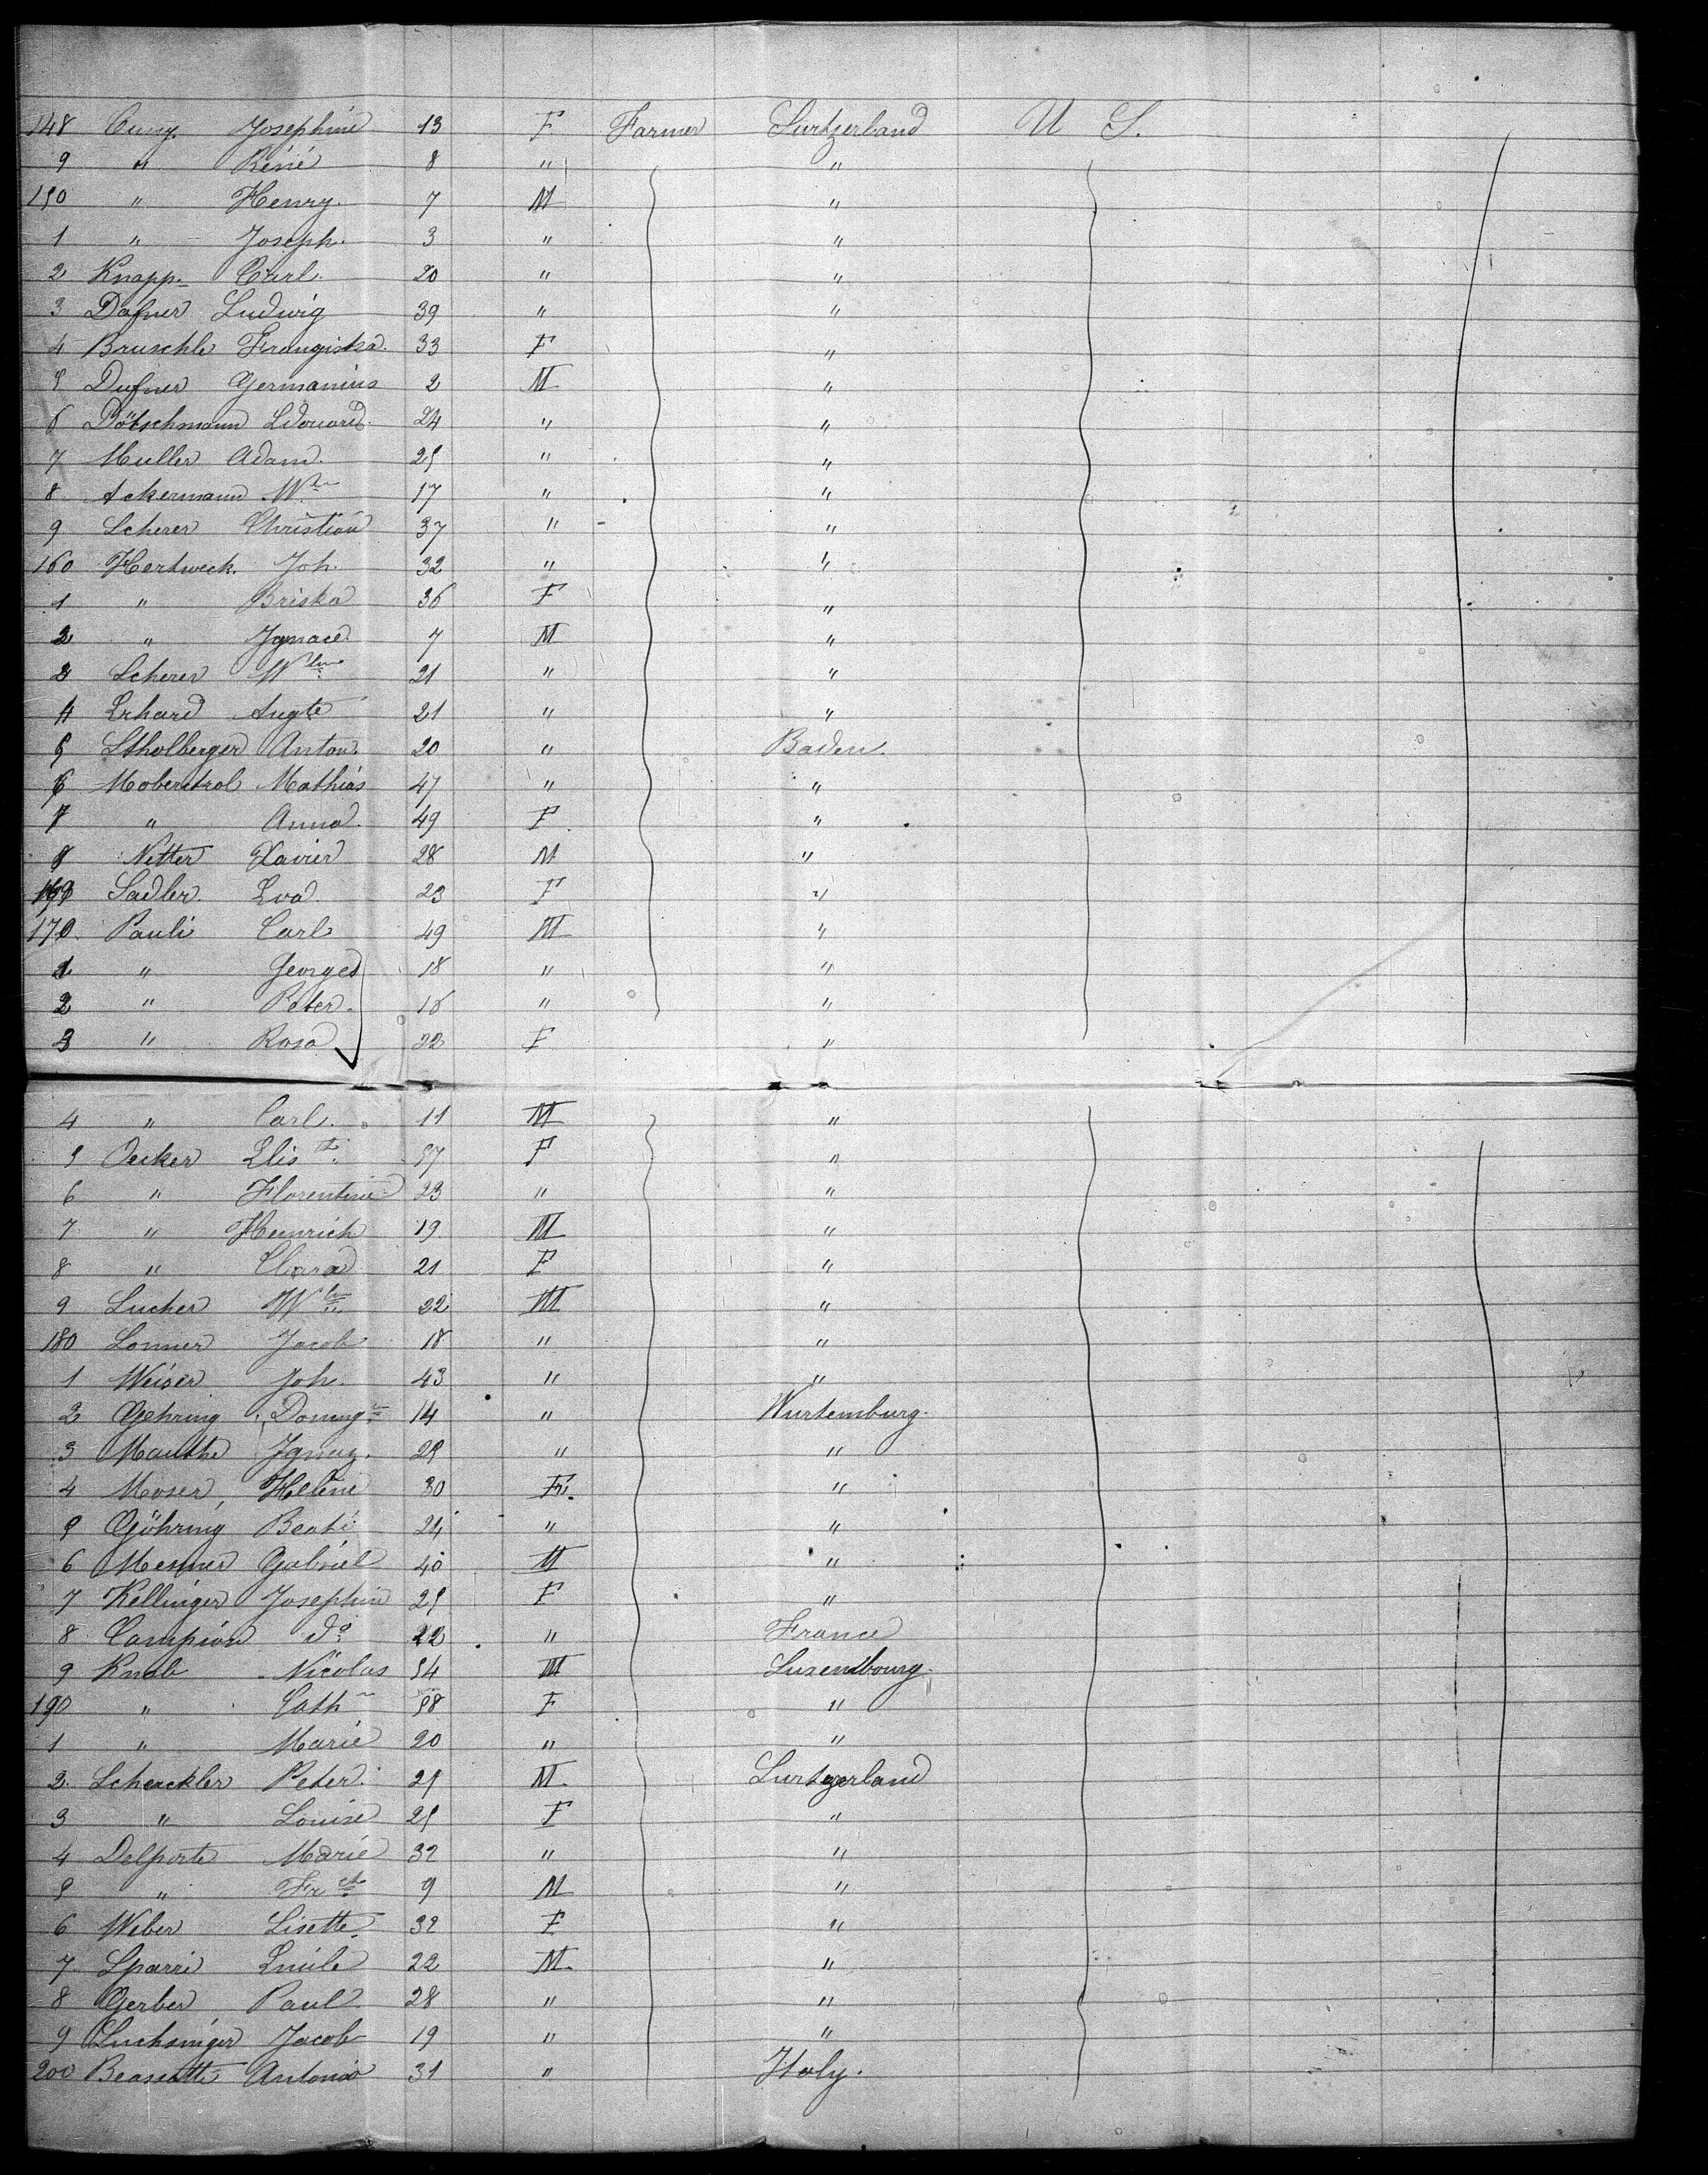 148 Cuny. Josephine 13 F Farmer Surtzerland U S.
9 " Réné 8 " "
150 " Henry. 7 M "
1 " Joseph. 3 " "
2 Knapp. Carl. 20 " "
3 Dafner Ludwig 39 " "
4 Bruschle Frangiska. 33 F "
5 Dufner Germanius 2 M "
6 Dötschmann Edouard. 24 " "
7 Muller Adam. 25 " "
8 Ackermann Wm 17 " "
9 Scherer Christian 37 " "
160 Hertweck. Joh. 32 " "
1 " Briska 36 F "
2 " Jgnace 7 M "
Scherer Wlm 21 " "
4 Erhard Augte 21 " "
5 Stholberger Anton. 20 " Baden.
6 Moberstrol Mathias 47 " "
7 " Anna. 49 F "
8 Netter Xavier 28 M "
169 Sadler. Eva. 23 F "
170. Pauli Carl 49 M "
1 " Georges 18 " "
2 " Peter. 16 " "
3 " Rosa 22 F "
4 " Carl. 11 M "
5 Decker Elisth 57 F "
6 " Florentine 23 " "
7 " Heinrich 19 M "
8 " Clara 21 F "
9 Lucher Wlm 22 M "
180 Lonner Jacob 18 " "
1 Weiser Joh. 43 " "
2 Gehring Doming 14 " Wurtemburg.
3 Mauthe Jgnaz. 25 " "
4 Moser, Helene 30 F. "
5 Göhring Beate 24 " "
6 Mesmer Gabriel 40 M "
7 Kellinger Josephine 25 F "
8 Campion do 22 " France
9 Knob Nicolas 54 M Luxembourg.
190 " Cath 58 F "
1 " Marie 20 " "
2. Scheackler Peter. 25 M. Surtzerland
3 " Louise 25 F "
4 Delporte Marie 32 " "
5 " Frch 9 M "
6 Weber Lisette 32 F "
7 Sparri Emile 22 M. "
8 Gerber Paul 28 " "
9 Luchsinger Jacob 19 " "
200 Beasiatte Antonio 31 " Italy.